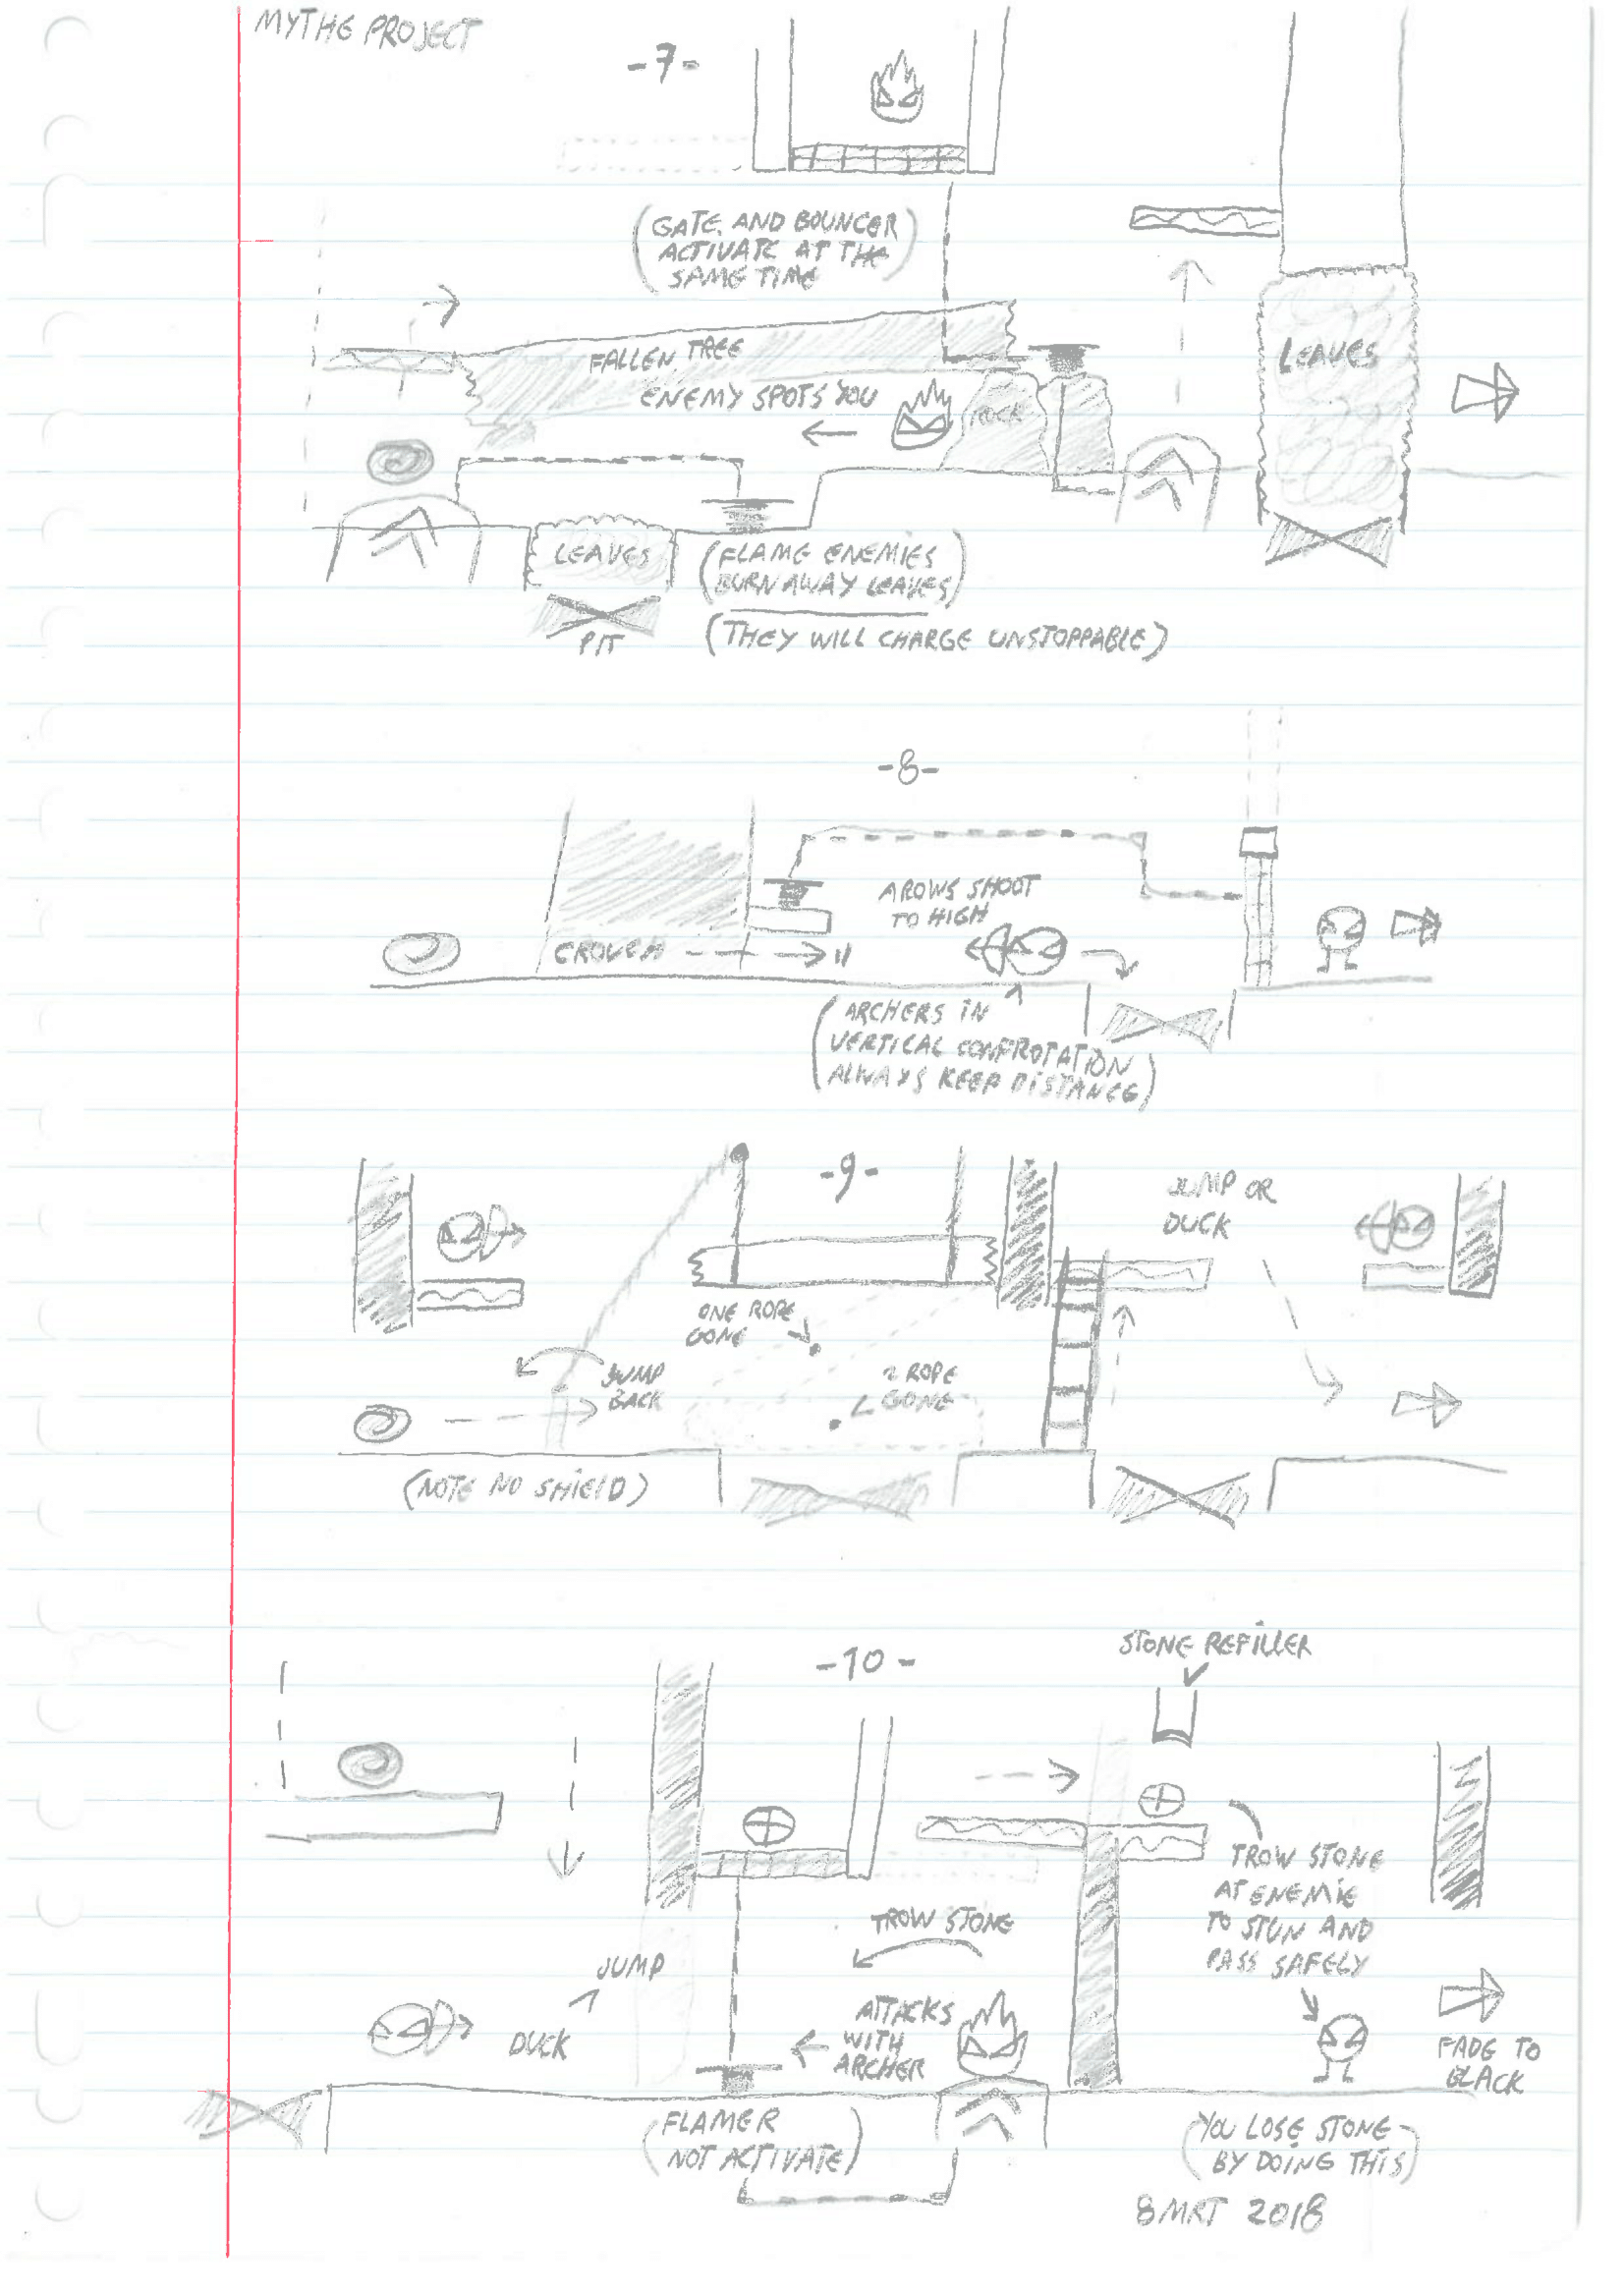 MYTHE PROJECT
-7-
(GATE AND BOUNCER
ACTIVATE AT THE
SAME TIME)
FALLEN TREE
ENEMY SPOTS YOU
ROCK
LEAVES
LEAVES
(FLAME ENEMIES
BURN AWAY LEAVES)
PIT
(THEY WILL CHARGE UNSTOPPABLE)
-8-
AROWS SHOOT
TO HIGH
CROUCH
(ARCHERS IN
VERTICAL CONFROTATION
ALWAYS KEEP DISTANCE)
-9-
JUMP OR
DUCK
ONE ROPE
GONE
JUMP
BACK
2 ROPE
GONE
(NOTE NO SHIELD)
-10-
STONE REFILLER
TROW STONE
AT ENEMIE
TO STUN AND
PASS SAFELY
TROW STONE
JUMP
DUCK
ATTACKS
WITH
ARCHER
FADE TO
BLACK
(FLAMER
NOT ACTIVATE)
(YOU LOSE STONE
BY DOING THIS)
8 MRT 2018